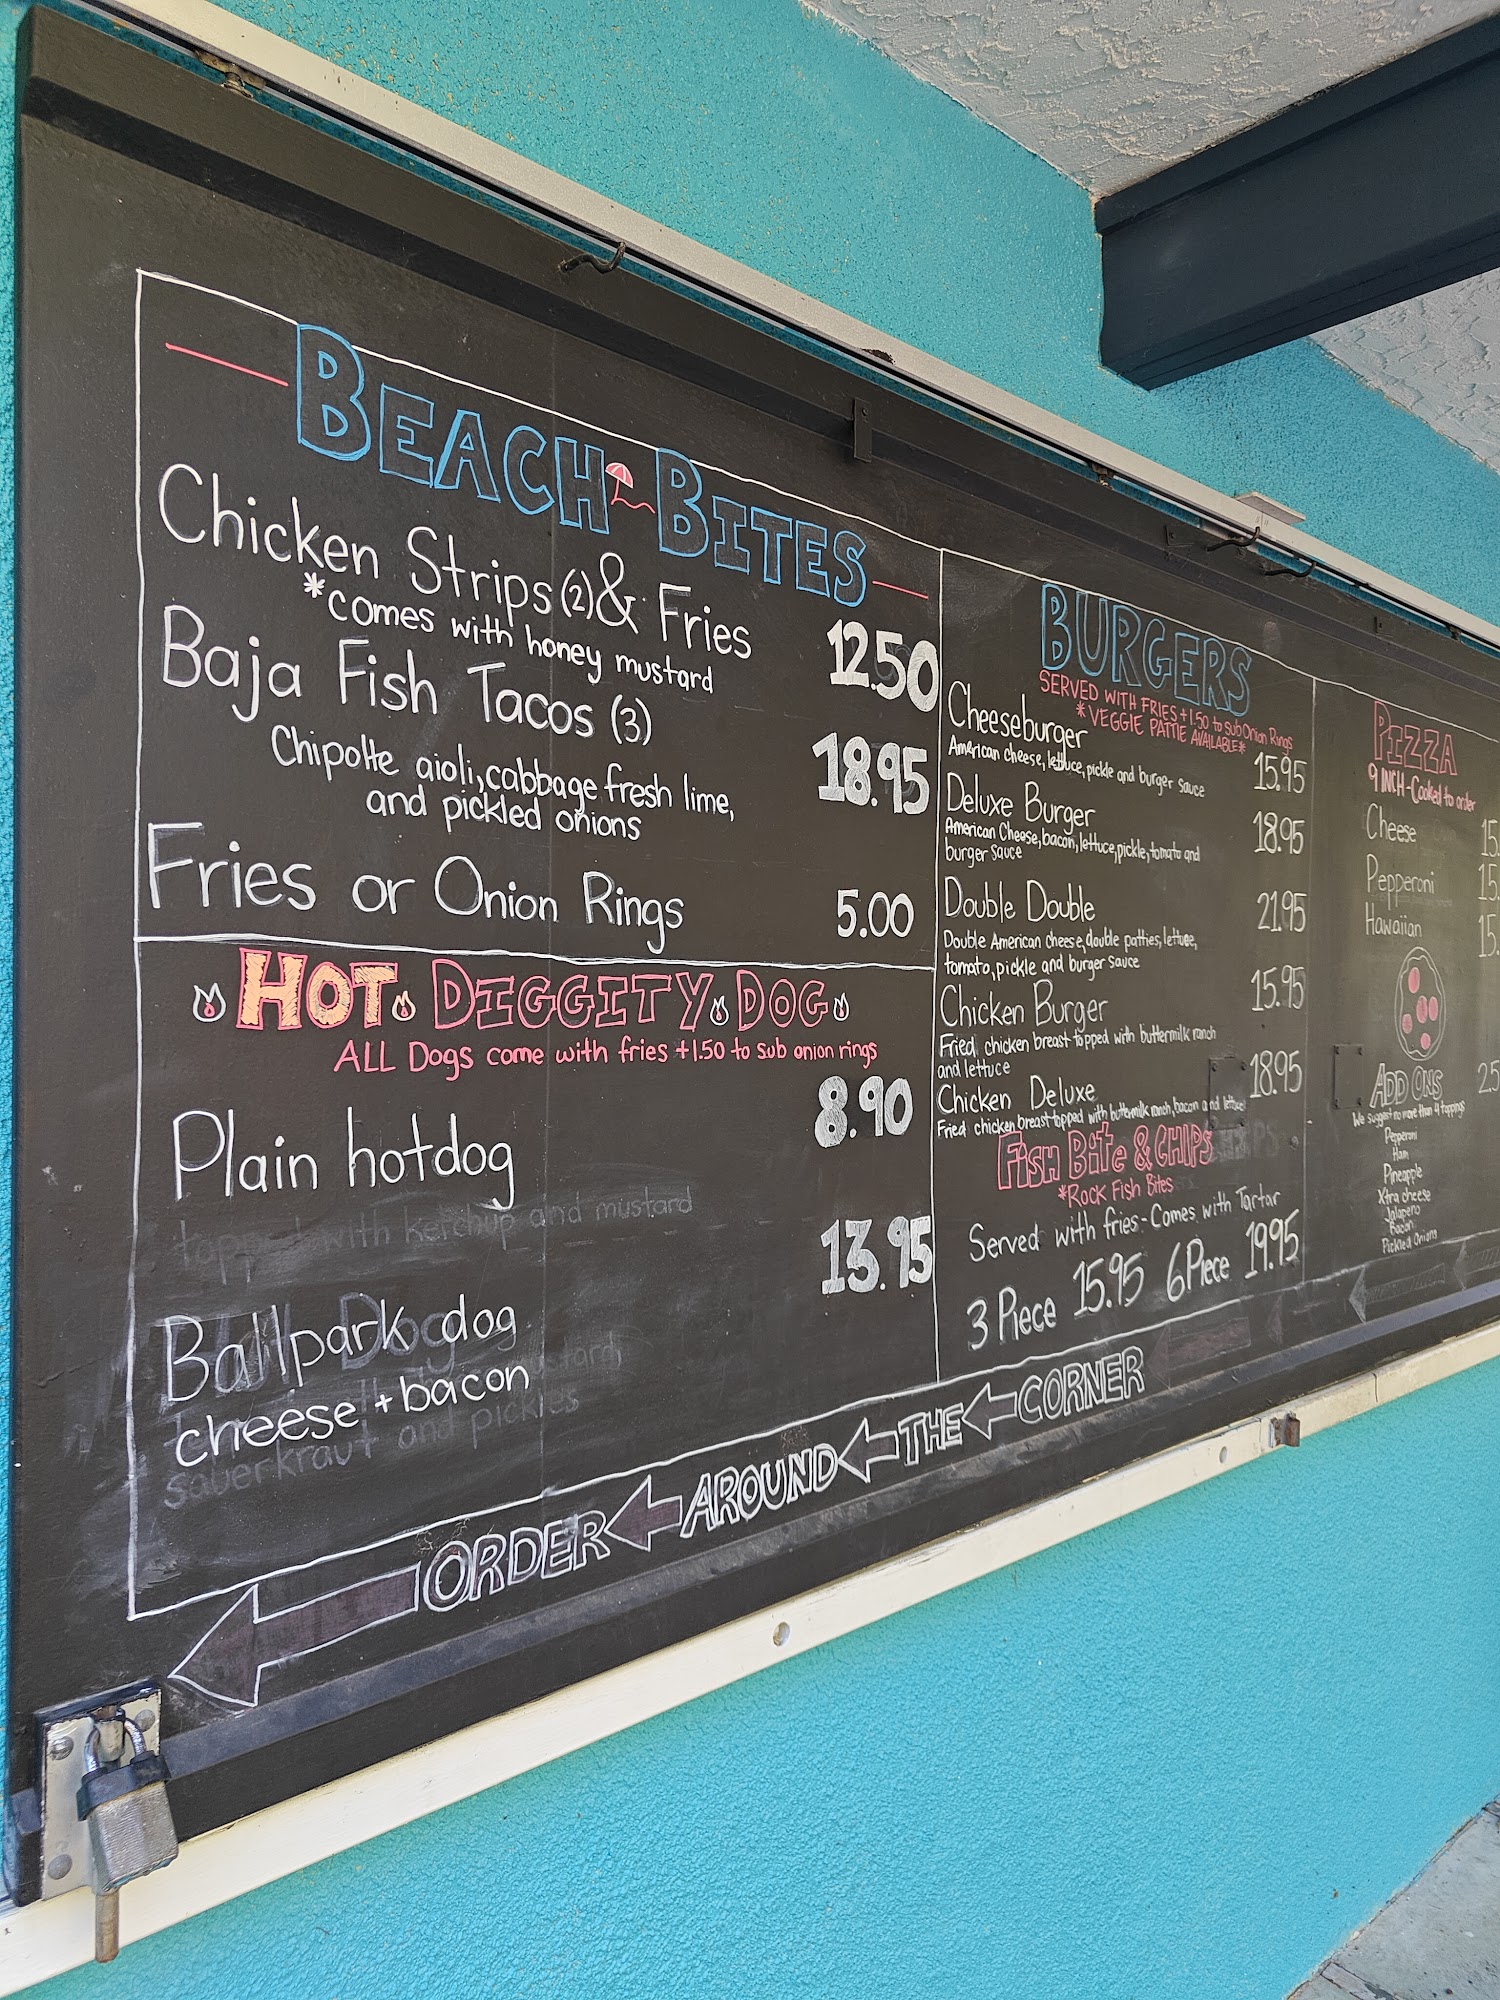 BEACH BITES
Chicken Strips (2) & Fries 12.50
*comes with honey mustard
Baja Fish Tacos (3) 18.95
Chipotle aioli, cabbage fresh lime,
and pickled onions
Fries or Onion Rings 5.00
HOT DIGGITY DOG
ALL Dogs come with fries +1.50 to sub onion rings
Plain hotdog 8.90
topped with ketchup and mustard
Ballpark dog 13.95
cheese + bacon
sauerkraut and pickles
BURGERS
SERVED WITH FRIES +1.50 to sub Onion Rings
*VEGGIE PATTIE AVAILABLE*
Cheeseburger 15.95
American cheese, lettuce, pickle and burger sauce
Deluxe Burger 18.95
American Cheese, bacon, lettuce, pickle, tomato and
burger sauce
Double Double 21.95
Double American cheese, double patties, lettuce,
tomato, pickle and burger sauce
Chicken Burger 15.95
Fried chicken breast topped with buttermilk ranch
and lettuce
Chicken Deluxe 18.95
Fried chicken breast topped with buttermilk ranch, bacon and lettuce
FISH BITE & CHIPS
*ROCK FISH BITES
Served with fries - Comes with Tartar
3 Piece 15.95 6 Piece 19.95
PIZZA
9 INCH - Cooked to order
Cheese 15.
Pepperoni 15.
Hawaiian 15.
ADD ONS 2.5
We suggest no more than 4 toppings
Pepperoni
Ham
Pineapple
Xtra cheese
Jalapeno
Bacon
Pickled Onions
ORDER AROUND THE CORNER